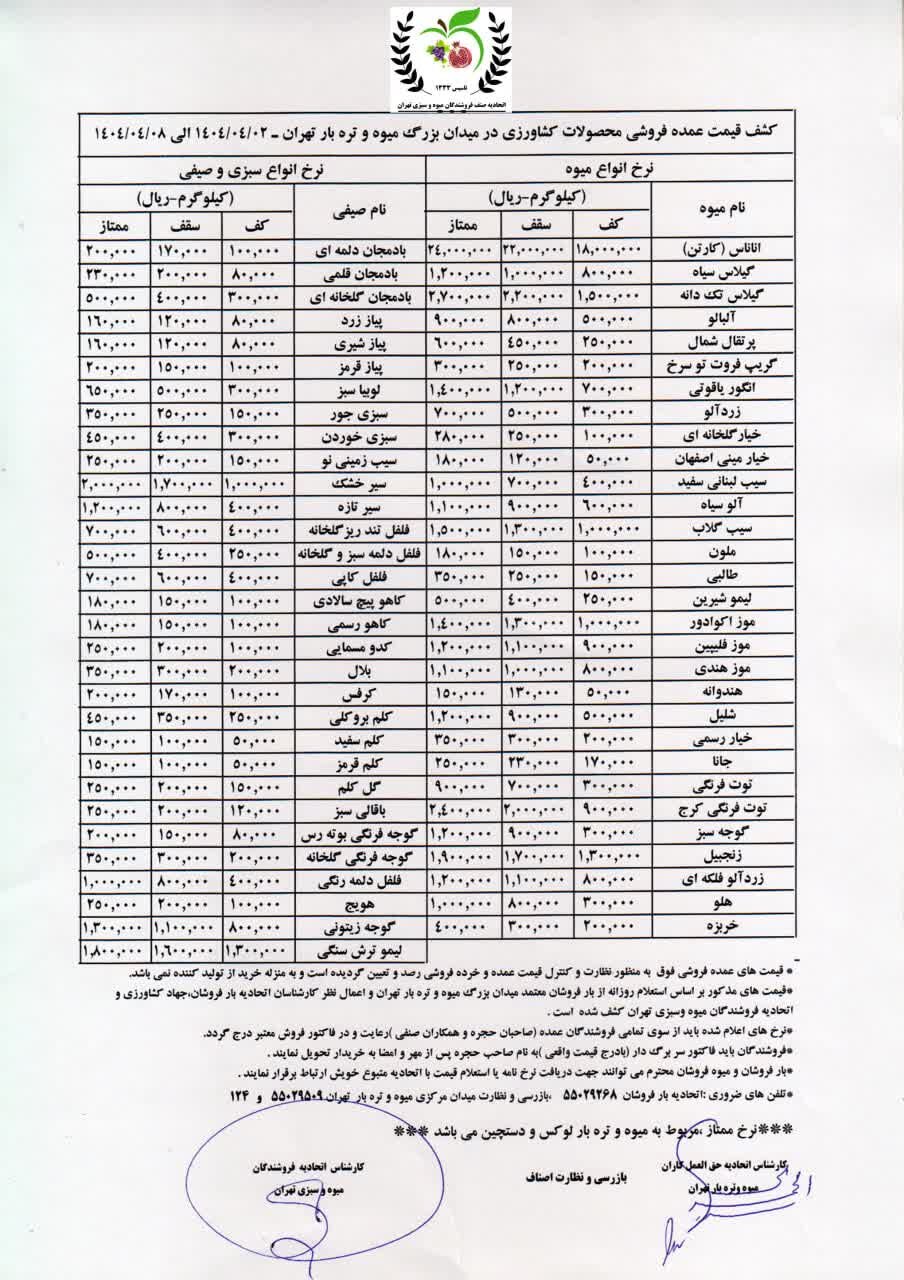 تاسیس ۱۳۳۳
اتحادیه صنف فروشندگان میوه و سبزی تهران
کشف قیمت عمده فروشی محصولات کشاورزی در میدان بزرگ میوه و تره بار تهران ـ ۱۴۰۴/۰۴/۰۲ الی ۱۴۰۴/۰۴/۰۸
نرخ انواع میوه نرخ انواع سبزی و صیفی
نام میوه (کیلوگرم-ریال) نام صیفی (کیلوگرم-ریال)
کف سقف ممتاز کف سقف ممتاز
اناناس (کارتن) ۱۸,۰۰۰,۰۰۰ ۲۲,۰۰۰,۰۰۰ ۲۴,۰۰۰,۰۰۰ بادمجان دلمه ای ۱۰۰,۰۰۰ ۱۷۰,۰۰۰ ۲۰۰,۰۰۰
گیلاس سیاه ۸۰۰,۰۰۰ ۱,۰۰۰,۰۰۰ ۱,۲۰۰,۰۰۰ بادمجان قلمی ۸۰,۰۰۰ ۲۰۰,۰۰۰ ۲۳۰,۰۰۰
گیلاس تک دانه ۱,۵۰۰,۰۰۰ ۲,۲۰۰,۰۰۰ ۲,۷۰۰,۰۰۰ بادمجان گلخانه ای ۳۰۰,۰۰۰ ۴۰۰,۰۰۰ ۵۰۰,۰۰۰
آلبالو ۵۰۰,۰۰۰ ۸۰۰,۰۰۰ ۹۰۰,۰۰۰ پیاز زرد ۸۰,۰۰۰ ۱۲۰,۰۰۰ ۱۶۰,۰۰۰
پرتقال شمال ۲۵۰,۰۰۰ ۴۵۰,۰۰۰ ۶۰۰,۰۰۰ پیاز شیری ۸۰,۰۰۰ ۱۲۰,۰۰۰ ۱۶۰,۰۰۰
گریپ فروت تو سرخ ۲۰۰,۰۰۰ ۲۵۰,۰۰۰ ۳۰۰,۰۰۰ پیاز قرمز ۱۰۰,۰۰۰ ۱۵۰,۰۰۰ ۲۰۰,۰۰۰
انگور یاقوتی ۷۰۰,۰۰۰ ۱,۲۰۰,۰۰۰ ۱,۴۰۰,۰۰۰ لوبیا سبز ۳۰۰,۰۰۰ ۵۰۰,۰۰۰ ۶۵۰,۰۰۰
زردآلو ۳۰۰,۰۰۰ ۵۰۰,۰۰۰ ۷۰۰,۰۰۰ سبزی جور ۱۵۰,۰۰۰ ۲۵۰,۰۰۰ ۳۵۰,۰۰۰
خیارگلخانه ای ۱۰۰,۰۰۰ ۲۵۰,۰۰۰ ۲۸۰,۰۰۰ سبزی خوردن ۳۰۰,۰۰۰ ۴۰۰,۰۰۰ ۴۵۰,۰۰۰
خیار مینی اصفهان ۵۰,۰۰۰ ۱۲۰,۰۰۰ ۱۸۰,۰۰۰ سیب زمینی نو ۱۵۰,۰۰۰ ۲۰۰,۰۰۰ ۲۵۰,۰۰۰
سیب لبنانی سفید ۴۰۰,۰۰۰ ۷۰۰,۰۰۰ ۱,۰۰۰,۰۰۰ سیر خشک ۱,۰۰۰,۰۰۰ ۱,۷۰۰,۰۰۰ ۲,۰۰۰,۰۰۰
آلو سیاه ۶۰۰,۰۰۰ ۹۰۰,۰۰۰ ۱,۱۰۰,۰۰۰ سیر تازه ۴۰۰,۰۰۰ ۸۰۰,۰۰۰ ۱,۲۰۰,۰۰۰
سیب گلاب ۱,۰۰۰,۰۰۰ ۱,۳۰۰,۰۰۰ ۱,۵۰۰,۰۰۰ فلفل تند ریزگلخانه ۴۰۰,۰۰۰ ۶۰۰,۰۰۰ ۷۰۰,۰۰۰
ملون ۱۰۰,۰۰۰ ۱۵۰,۰۰۰ ۱۸۰,۰۰۰ فلفل دلمه سبز و گلخانه ۲۵۰,۰۰۰ ۴۰۰,۰۰۰ ۵۰۰,۰۰۰
طالبی ۱۵۰,۰۰۰ ۲۵۰,۰۰۰ ۳۵۰,۰۰۰ فلفل کاپی ۴۰۰,۰۰۰ ۶۰۰,۰۰۰ ۷۰۰,۰۰۰
لیمو شیرین ۲۵۰,۰۰۰ ۴۰۰,۰۰۰ ۵۰۰,۰۰۰ کاهو پیچ سالادی ۱۰۰,۰۰۰ ۱۵۰,۰۰۰ ۱۸۰,۰۰۰
موز اکوادور ۱,۰۰۰,۰۰۰ ۱,۳۰۰,۰۰۰ ۱,۴۰۰,۰۰۰ کاهو رسمی ۱۰۰,۰۰۰ ۱۵۰,۰۰۰ ۱۸۰,۰۰۰
موز فلیپین ۹۰۰,۰۰۰ ۱,۱۰۰,۰۰۰ ۱,۲۰۰,۰۰۰ کدو مسمایی ۱۰۰,۰۰۰ ۲۰۰,۰۰۰ ۲۵۰,۰۰۰
موز هندی ۸۰۰,۰۰۰ ۱,۰۰۰,۰۰۰ ۱,۱۰۰,۰۰۰ بلال ۲۰۰,۰۰۰ ۳۰۰,۰۰۰ ۳۵۰,۰۰۰
هندوانه ۵۰,۰۰۰ ۱۳۰,۰۰۰ ۱۵۰,۰۰۰ کرفس ۱۰۰,۰۰۰ ۱۷۰,۰۰۰ ۲۰۰,۰۰۰
شلیل ۵۰۰,۰۰۰ ۹۰۰,۰۰۰ ۱,۲۰۰,۰۰۰ کلم بروکلی ۲۵۰,۰۰۰ ۳۵۰,۰۰۰ ۴۵۰,۰۰۰
خیار رسمی ۲۰۰,۰۰۰ ۳۰۰,۰۰۰ ۳۵۰,۰۰۰ کلم سفید ۵۰,۰۰۰ ۱۰۰,۰۰۰ ۱۵۰,۰۰۰
جانا ۱۷۰,۰۰۰ ۲۳۰,۰۰۰ ۲۵۰,۰۰۰ کلم قرمز ۵۰,۰۰۰ ۱۰۰,۰۰۰ ۱۵۰,۰۰۰
توت فرنگی ۳۰۰,۰۰۰ ۷۰۰,۰۰۰ ۹۰۰,۰۰۰ گل کلم ۱۵۰,۰۰۰ ۲۰۰,۰۰۰ ۲۵۰,۰۰۰
توت فرنگی کرج ۹۰۰,۰۰۰ ۲,۰۰۰,۰۰۰ ۲,۴۰۰,۰۰۰ باقالی سبز ۱۲۰,۰۰۰ ۲۰۰,۰۰۰ ۲۵۰,۰۰۰
گوجه سبز ۳۰۰,۰۰۰ ۹۰۰,۰۰۰ ۱,۲۰۰,۰۰۰ گوجه فرنگی بوته رس ۸۰,۰۰۰ ۱۵۰,۰۰۰ ۲۰۰,۰۰۰
زنجبیل ۱,۳۰۰,۰۰۰ ۱,۷۰۰,۰۰۰ ۱,۹۰۰,۰۰۰ گوجه فرنگی گلخانه ۲۰۰,۰۰۰ ۳۰۰,۰۰۰ ۳۵۰,۰۰۰
زردآلو فلکه ای ۸۰۰,۰۰۰ ۱,۱۰۰,۰۰۰ ۱,۲۰۰,۰۰۰ فلفل دلمه رنگی ۴۰۰,۰۰۰ ۸۰۰,۰۰۰ ۱,۰۰۰,۰۰۰
هلو ۳۰۰,۰۰۰ ۸۰۰,۰۰۰ ۱,۰۰۰,۰۰۰ هویج ۱۰۰,۰۰۰ ۲۰۰,۰۰۰ ۲۵۰,۰۰۰
خربزه ۲۰۰,۰۰۰ ۳۰۰,۰۰۰ ۴۰۰,۰۰۰ گوجه زیتونی ۸۰۰,۰۰۰ ۱,۱۰۰,۰۰۰ ۱,۳۰۰,۰۰۰
لیمو ترش سنگی ۱,۳۰۰,۰۰۰ ۱,۶۰۰,۰۰۰ ۱,۸۰۰,۰۰۰
* قیمت های عمده فروشی فوق به منظور نظارت و کنترل قیمت عمده و خرده فروشی رصد و تعیین گردیده است و به منزله خرید از تولید کننده نمی باشد.
*قیمت های مذکور بر اساس استعلام روزانه از بار فروشان معتمد میدان بزرگ میوه و تره بار تهران و اعمال نظر کارشناسان اتحادیه بار فروشان،جهاد کشاورزی و
اتحادیه فروشندگان میوه وسبزی تهران کشف شده است .
*نرخ های اعلام شده باید از سوی تمامی فروشندگان عمده (صاحبان حجره و همکاران صنفی )رعایت و در فاکتور فروش معتبر درج گردد.
*فروشندگان باید فاکتور سر برگ دار (بادرج قیمت واقعی )به نام صاحب حجره پس از مهر و امضا به خریدار تحویل نمایند .
*بار فروشان و میوه فروشان محترم می توانند جهت دریافت نرخ نامه یا استعلام قیمت با اتحادیه متبوع خویش ارتباط برقرار نمایند .
*تلفن های ضروری :اتحادیه بار فروشان ۵۵۰۲۹۲۶۸ ،بازرسی و نظارت میدان مرکزی میوه و تره بار تهران ۵۵۰۲۹۵۰۹ و ۱۲۴
***نرخ ممتاز ،مربوط به میوه و تره بار لوکس و دستچین می باشد ***
کارشناس اتحادیه حق العمل کاران بازرسی و نظارت اصناف کارشناس اتحادیه فروشندگان
میوه وتره بار تهران میوه و سبزی تهران